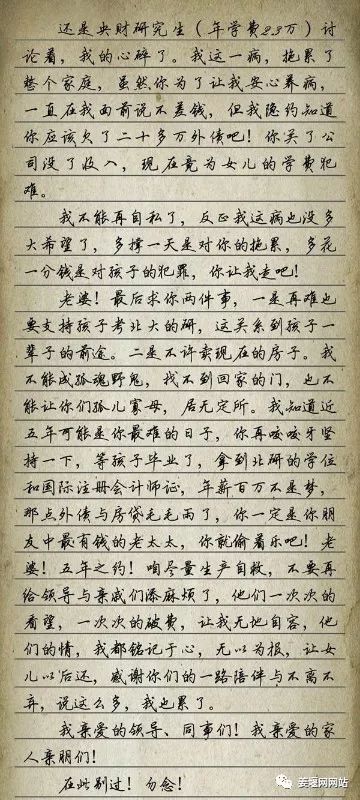 还是央财研究生（年学费23万）讨
论着，我的心碎了。我这一病，拖累了
整个家庭，虽然你为了让我安心养病，
一直在我面前说不差钱，但我隐约知道
你应该欠了二十多万外债吧！你关了公
司没了收入，现在竟为女儿的学费犯
难。
我不能再自私了，反正我这病也没多
大希望了，多撑一天是对你的拖累，多花
一分钱是对孩子的犯罪，你让我走吧！
老婆！最后求你两件事，一是再难也
要支持孩子考北大的研，这关系到孩子一
辈子的前途。二是不许卖现在的房子。我
不能成孤魂野鬼，找不到回家的门，也不
能让你们孤儿寡母，居无定所。我知道近
五年可能是你最难的日子，你再咬咬牙坚
持一下，等孩子毕业了，拿到北研的学位
和国际注册会计师证，年薪百万不是梦，
那点外债与房贷毛毛雨了，你一定是你朋
友中最有钱的老太太，你就偷着乐吧！老
婆！五年之约！咱尽量生产自救，不要再
给领导与亲戚们添麻烦了，他们一次次的
看望，一次次的破费，让我无地自容，他
们的情，我都铭记于心，无以为报，让女
儿以后还，感谢你们的一路陪伴与不离不
弃，说这么多，我也累了。
我亲爱的领导、同事们！我亲爱的家
人亲朋们！
在此别过！勿念！
姜堰网网站